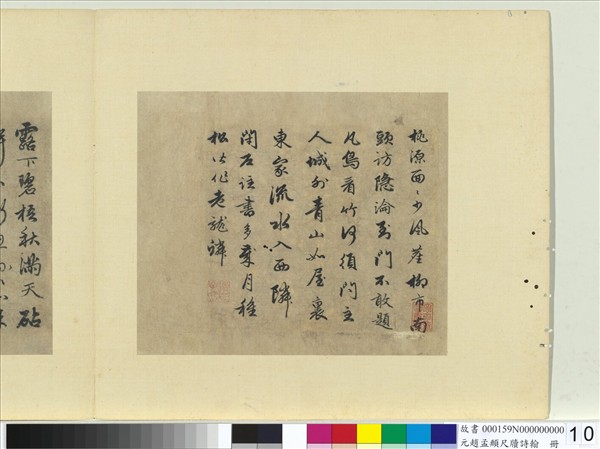 桃源面々少風塵柳市南
頭訪隱淪至門不敢題
凡鳥看竹何須問主
人城外青山如屋裏
東家流水入西隣
書多歲月種
松皆作老龍鱗
露下碧梧秋滿天砧
故書 000159N000000000
元趙孟頫尺牘詩翰 冊
10